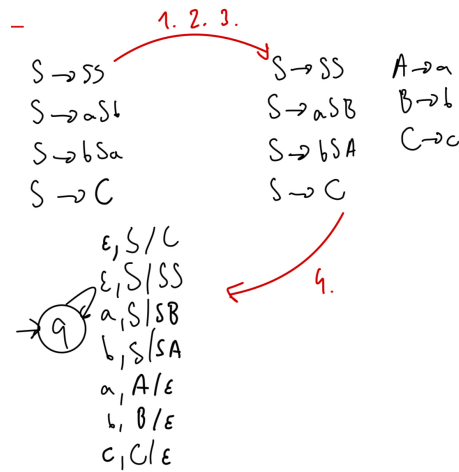 1. 2. 3.
S → SS
S → aSb
S → bSa
S → C
S → SS A → a
S → aSB B → b
S → bSA C → c
S → C
4.
ε, S/C
ε, S/SS
a, S/SB
b, S/SA
a, A/ε
b, B/ε
c, C/ε
q